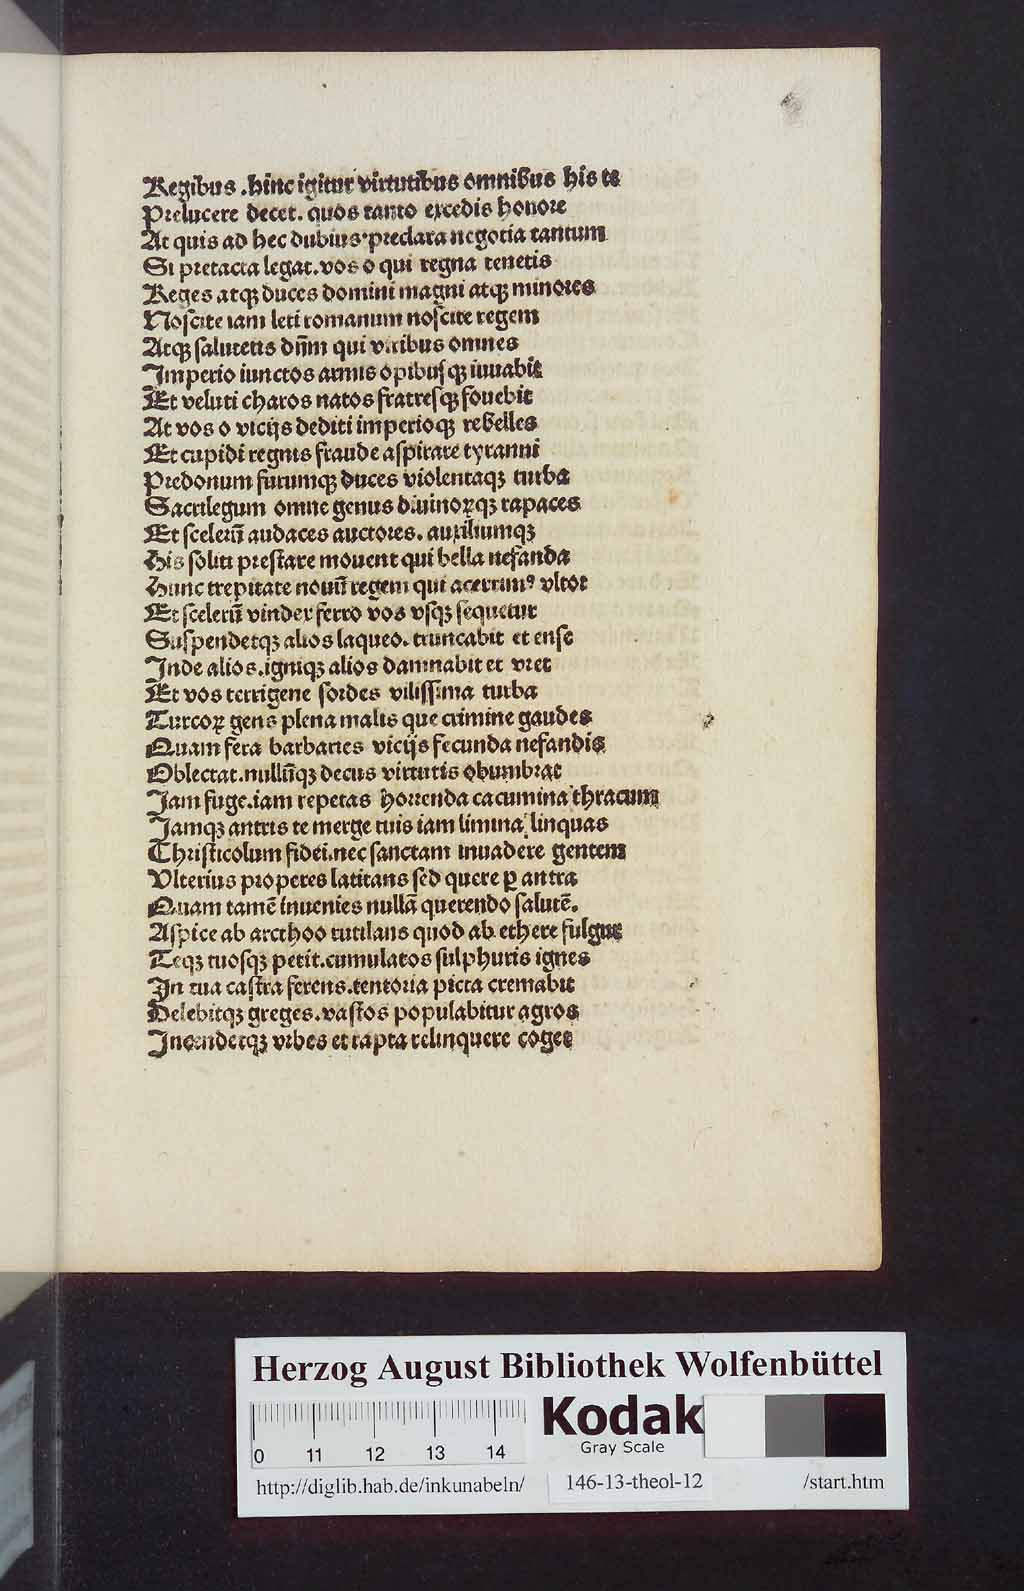 Regibus .hinc igitur virtutibus omnibus his te
Prelucere decet. quos tanto excedis honore
At quis ad hec dubius·preclara negotia tantum
Si pretacta legat.vos o qui regna tenetis
Reges atqꝫ duces domini magni atqꝫ minores
Noscite iam leti romanum noscite regem
Atqꝫ salutetis dn̄m qui viribus omnes
Imperio iunctos armis opibusqꝫ iuuabit
Et veluti charos natos fratresqꝫ fouebit
At vos o vicijs dediti imperioqꝫ rebelles
Et cupidi regnis fraude aspirare tyranni
Predonum furumqꝫ duces violentaqꝫ turba
Sacrilegum omne genus diuinoꝝqꝫ rapaces
Et scelerū audaces auctores. auxiliumqꝫ
His soliti prestare mouent qui bella nefanda
Hunc trepitate nouū regem qui acerrimꝰ vltor
Et scelerū vindex ferro vos vsqꝫ sequetur
Suspendetqꝫ alios laqueo. truncabit et ense
Inde alios.igniqꝫ alios damnabit et vret
Et vos terrigene sordes vilissima turba
Turcoꝝ gens plena malis que crimine gaudes
Quam fera barbaries vicijs fecunda nefandis
Oblectat.nullūqꝫ decus virtutis obumbrat
Iam fuge.iam repetas horrenda cacumina thracum
Iamqꝫ antris te merge tuis iam limina linquas
Christicolum fidei.nec sanctam inuadere gentem
Vlterius properes latitans sed quere ꝑ antra
Quam tamē inuenies nullā querendo salutē.
Aspice ab arcthoo rutilans quod ab ethere fulgur
Teqꝫ tuosqꝫ petit.cumulatos sulphuris ignes
In tua castra ferens.tentoria picta cremabit
Delebitqꝫ greges.vastos populabitur agros
Incendetqꝫ vrbes et rapta relinquere coget
Herzog August Bibliothek Wolfenbüttel
Kodak
Gray Scale
0 11 12 13 14
http://diglib.hab.de/inkunabeln/ 146-13-theol-12 /start.htm